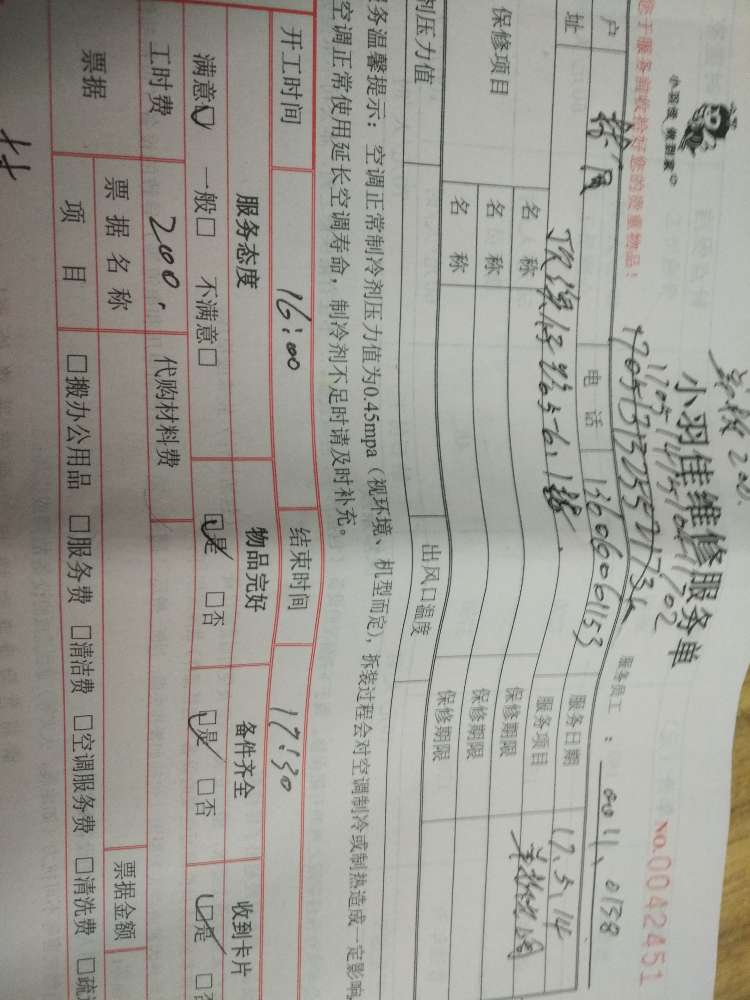 小羽佳 做到家
您于服务前收拾好您的贵重物品！
小羽佳维修服务单
NO.0042451
服务员工：0011、0138
户
电话 13606061153
服务日期 17.5.14
址
服务项目
保修项目
名 称
保修期限
名 称
保修期限
名 称
保修期限
剂压力值
出风口温度
务温馨提示：空调正常制冷剂压力值为0.45mpa（视环境、机型而定），拆装过程会对空调制冷或制热造成一定影响
空调正常使用延长空调寿命，制冷剂不足时请及时补充。
开工时间 16:00 结束时间 17:30
服务态度 物品完好 备件齐全 收到卡片
满意☑ 一般□ 不满意□ ☑是 □否 ☑是 □否 ☑是 □否
工时费 200. 代购材料费
票据 票据名称 票据金额
项 目 □搬办公用品 □服务费 □清洁费 □空调服务费 □清洗费 □疏